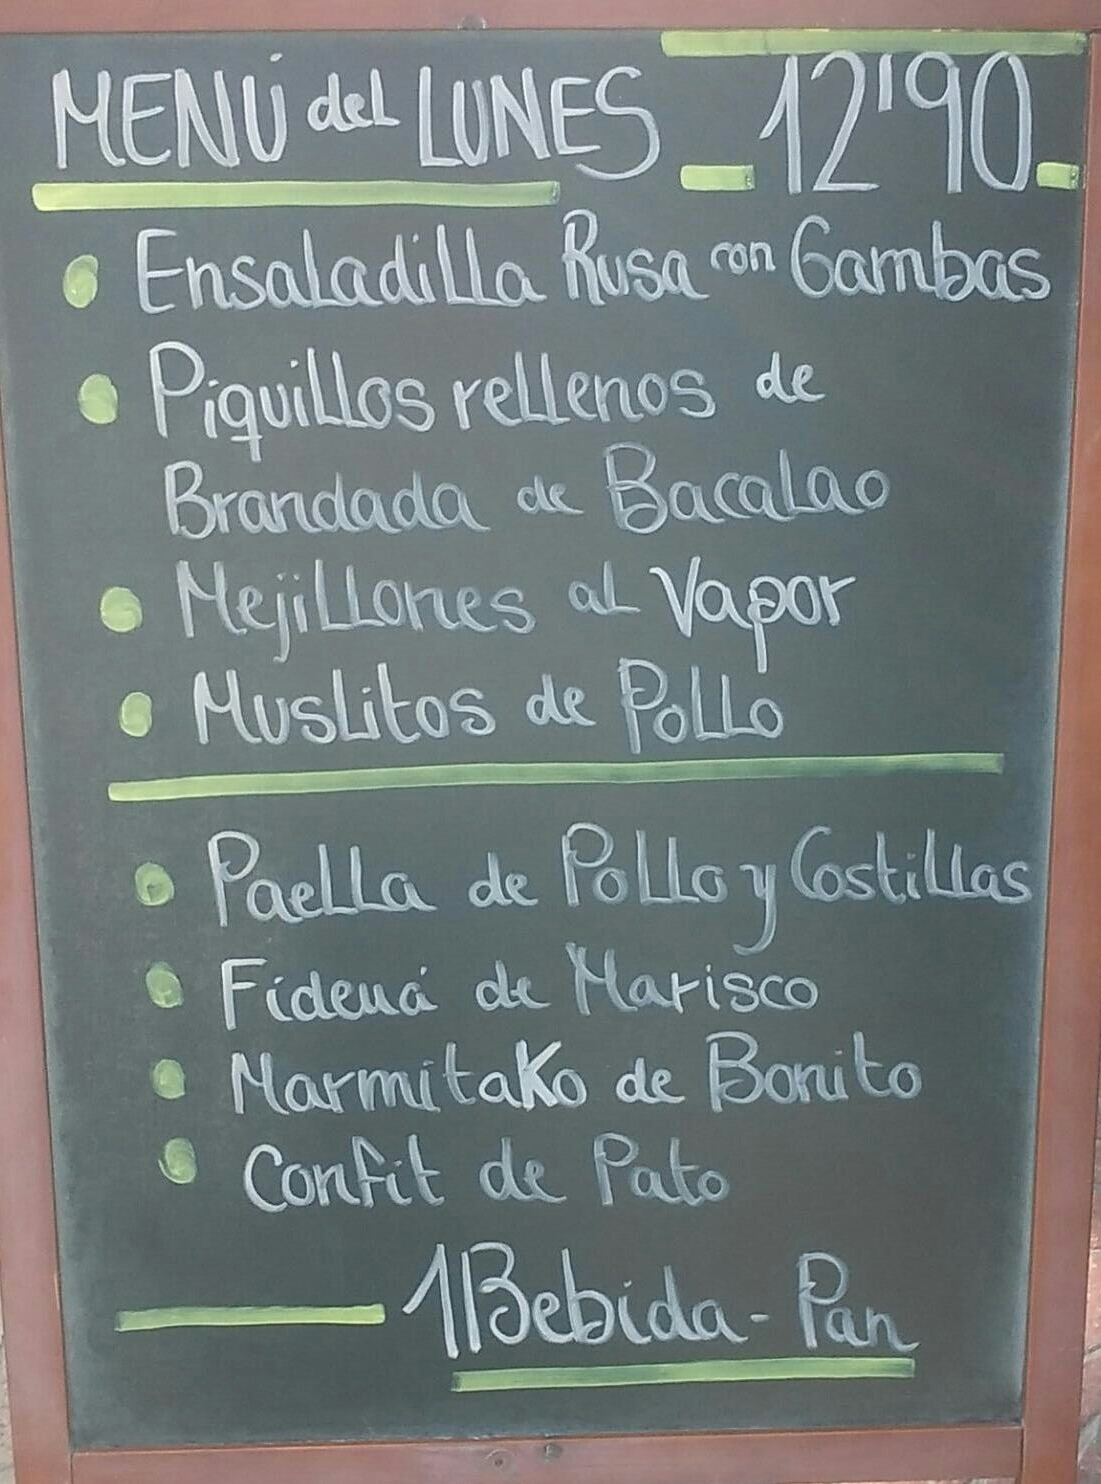 MENÚ del LUNES 12'90
Ensaladilla Rusa con Gambas
Piquillos rellenos de
Brandada de Bacalao
Mejillones al Vapor
Muslitos de Pollo
Paella de Pollo y Costillas
Fideuá de Marisco
Marmitako de Bonito
Confit de Pato
1 Bebida - Pan